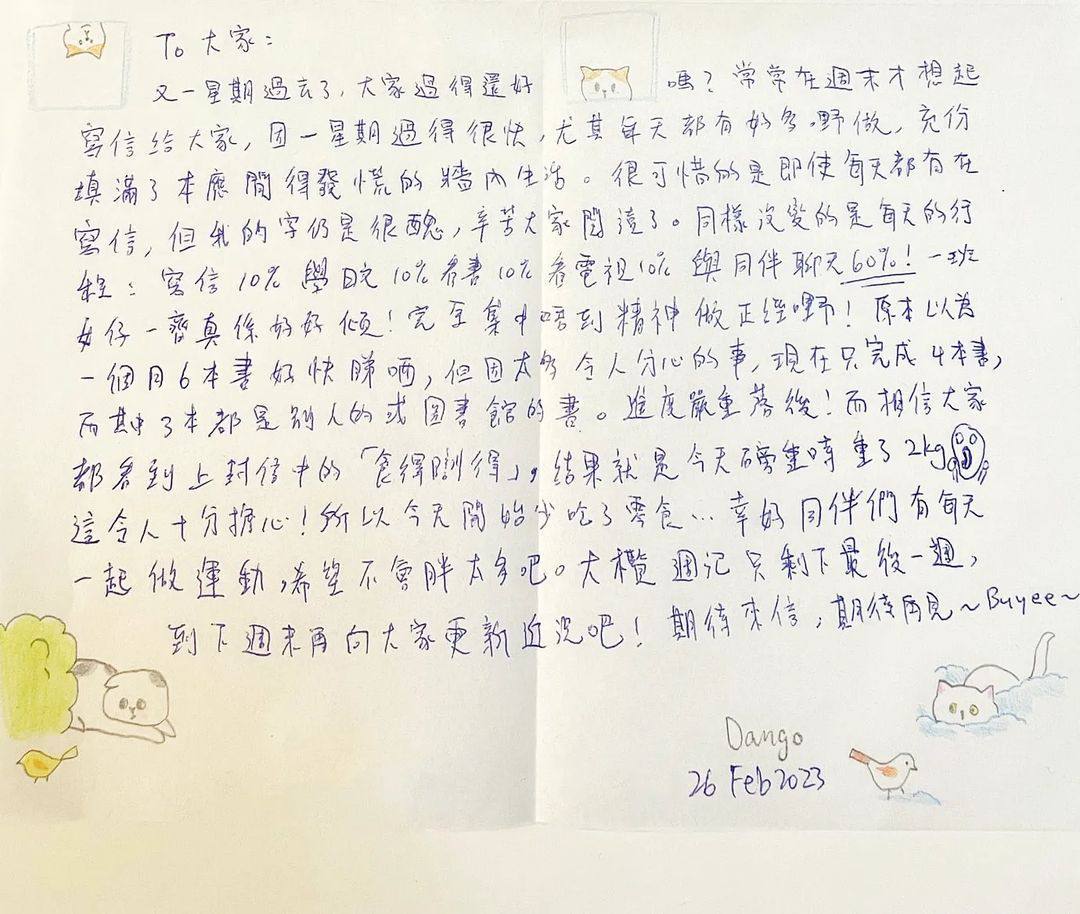 To 大家：
又一星期過去了，大家過得還好嗎？常常在週末才想起
寫信給大家，因一星期過得很快，尤其每天都有好多嘢做，充份
填滿了本應閒得發慌的牆內生活。很可惜的是即使每天都有在
寫信，但我的字仍是很醜，辛苦大家閱讀了。同樣沒變的是每天的行
程：寫信10% 學日文10% 看書10% 看電視10% 與同伴聊天60%！一班
女仔一齊真係好好傾！完全集中唔到精神做正經嘢！原本以為
一個月6本書好快睇哂，但因太多令人分心的事，現在只完成4本書，
而其中3本都是別人的或圖書館的書。進度嚴重落後！而相信大家
都看到上封信中的「食得瞓得」，結果就是今天磅重時重了2kg
這令人十分擔心！所以今天開始少吃了零食…幸好同伴們有每天
一起做運動，希望不會胖太多吧。大欖週記只剩下最後一週，
到下週末再向大家更新近況吧！期待來信，期待再見～Buyee～
Dango
26 Feb 2023